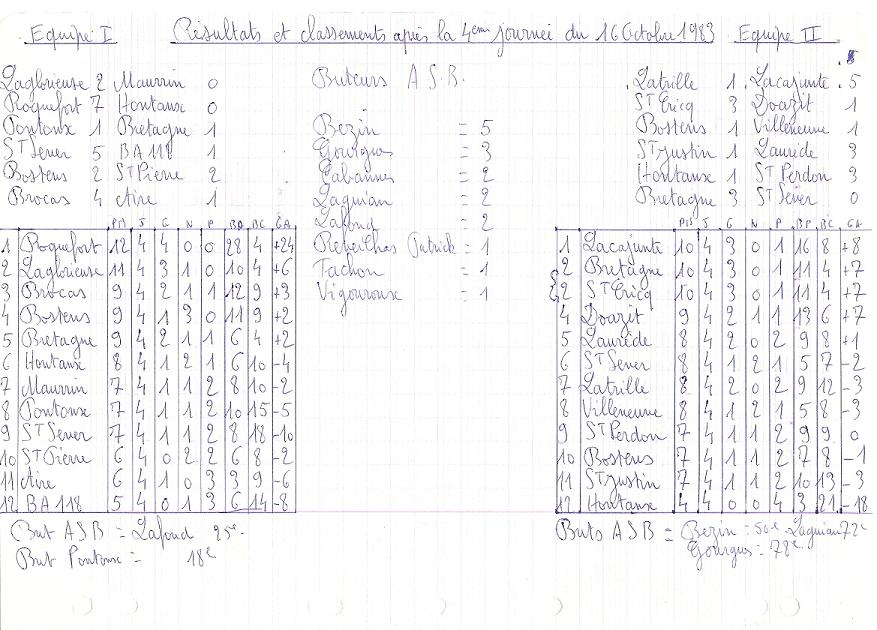 Equipe I Résultats et classements après la 4ème journée du 16 Octobre 1983 Equipe II
Laglorieuse 2 Maurrin 0
Roquefort 7 Hontanx 0
Pontonx 1 Bretagne 1
ST Sever 5 BA 118 1
Bostens 2 ST Pierre 2
Brocas 4 Aire 1
Buteurs A.S.B.
Bezin = 5
Gourgues = 3
Cabannes = 2
Laguian = 2
Lafond = 2
Patrick = 1
Tachon = 1
Vigouroux = 1
Latrille 1 Lacajunte 5
ST Ericq 3 Doazit 1
Bostens 1 Villeneuve 1
ST Justin 1 Laurède 3
Hontanx 1 ST Perdon 3
Bretagne 3 ST Sever 0
Pts J G N P BP BC GA
1 Roquefort 12 4 4 0 0 28 4 +24
2 Laglorieuse 11 4 3 1 0 10 4 +6
3 Brocas 9 4 2 1 1 12 9 +3
4 Bostens 9 4 1 3 0 11 9 +2
5 Bretagne 9 4 2 1 1 6 4 +2
6 Hontanx 8 4 1 2 1 6 10 -4
7 Maurrin 7 4 1 1 2 8 10 -2
8 Pontonx 7 4 1 1 2 10 15 -5
9 ST Sever 7 4 1 1 2 8 18 -10
10 ST Pierre 6 4 0 2 2 6 8 -2
11 Aire 6 4 1 0 3 3 9 -6
12 BA 118 5 4 0 1 3 6 14 -8
Pts J G N P BP BC GA
1 Lacajunte 10 4 3 0 1 16 8 +8
2 Bretagne 10 4 3 0 1 11 4 +7
2 ST Ericq 10 4 3 0 1 11 4 +7
4 Doazit 9 4 2 1 1 13 6 +7
5 Laurède 8 4 2 0 2 9 8 +1
6 ST Sever 8 4 1 2 1 5 7 -2
7 Latrille 8 4 2 0 2 9 12 -3
8 Villeneuve 8 4 1 2 1 5 8 -3
9 ST Perdon 7 4 1 1 2 9 9 0
10 Bostens 7 4 1 1 2 7 8 -1
11 ST Justin 7 4 1 1 2 10 13 -3
12 Hontanx 4 4 0 0 4 3 21 -18
But ASB = Lafond 25e
But Pontonx = 18e
Buts ASB = Bezin : 50e Laguian 72e
Gourgues = 78e